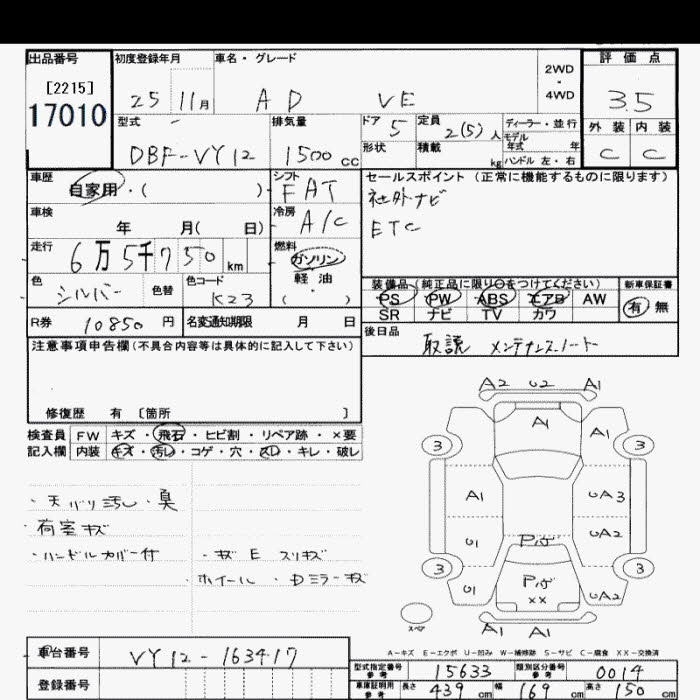 出品番号 初度登録年月 車名・グレード 2WD・4WD 評価点
[2215]
17010 25 11月 AD VE 3.5
型式 排気量 ドア 定員 ディーラー・並行 外装 内装
DBF-VY12 1500cc 5 2(5)人 モデル年式 年 C C
形状 積載 kg ハンドル 左・右
車歴 シフト セールスポイント (正常に機能するものに限ります)
自家用・( ) FAT 社外ナビ
車検 冷房 ETC
年 月( 日) A/C
走行 燃料
6万5千750km ガソリン
色 色替 色コード 軽油 装備品(純正品に限り○をつけてください) 新車保証書
シルバー K23 ( ) PS PW ABS エアB AW 有 無
SR ナビ TV カワ
R券 10850円 名変通知期限 月 日 後日品
注意事項申告欄(不具合内容等は具体的に記入して下さい) 取説 メンテナンスノート
修復歴 有 〔箇所 〕
検査員 FW キズ・飛石・ヒビ割・リペア跡・×要
記入欄 内装 キズ・汚レ・コゲ・穴・スレ・キレ・破レ
・天バリ汚レ・臭
・荷室キズ
・ハンドルカバー付 ・キズE スリキズ
・ホイール・Dミラーキズ
A2 U2 A1
A1 A1
3 3
A1 UA3
U1 UA2
3 3
U1 ×× UA2
スペア A1 A1
A-キズ E-エクボ U-凹み W-補修跡 S-サビ C-腐食 XX-交換済
車台番号 VY12-163417 型式指定番号 参考 15633 類別区分番号 参考 0014
登録番号 車庫証明用 参考 長さ 439cm 幅 169cm 高さ 150cm